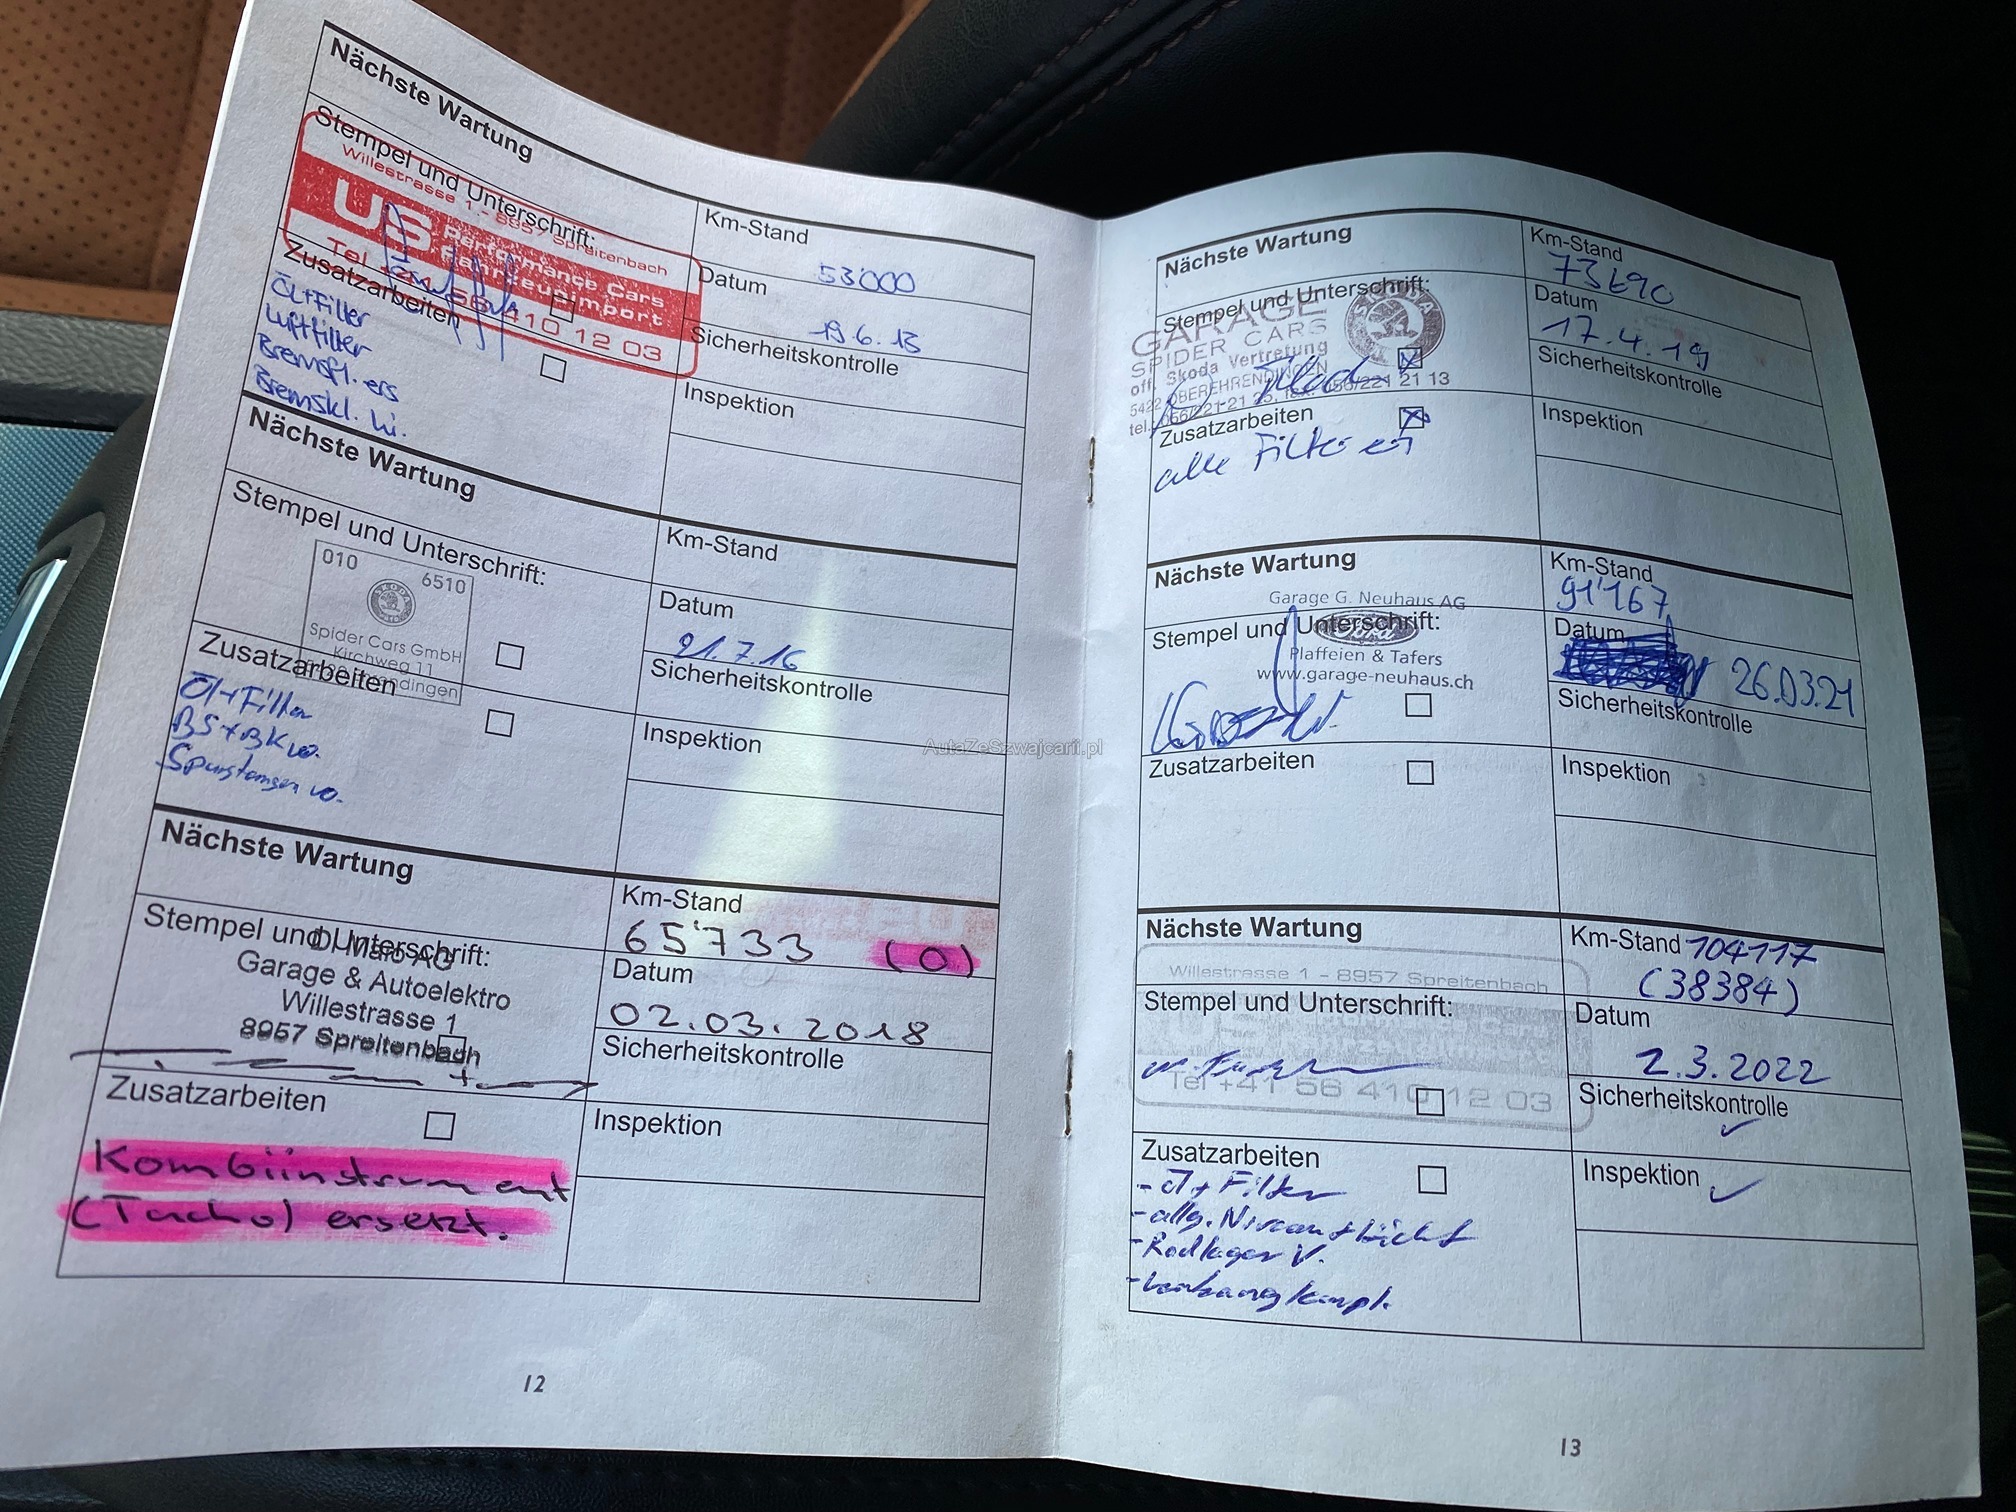 Nächste Wartung
Stempel und Unterschrift:
Willestrasse 1 - 8957 Spreitenbach
US Performance Cars
Tel +41 56 410 12 03
Km-Stand
53'000
Datum
19.6.13
Sicherheitskontrolle
Inspektion
Zusatzarbeiten
Öl+Filter
Luftfilter
Bremsfl. ers
Bremskl. hi.
Nächste Wartung
Stempel und Unterschrift:
010
6510
SKODA
Spider Cars GmbH
Kirchweg 11
Km-Stand
Datum
21.7.16
Sicherheitskontrolle
Inspektion
Zusatzarbeiten
Öl+Filter
BS+BK vo.
Spurstangen vo.
Nächste Wartung
Stempel und Unterschrift:
Di Maio AG
Garage & Autoelektro
Willestrasse 1
8957 Spreitenbach
Km-Stand
65'733 (0)
Datum
02.03.2018
Sicherheitskontrolle
Inspektion
Zusatzarbeiten
Kombiinstrument
(Tacho) ersetzt.
12
Nächste Wartung
Stempel und Unterschrift:
GARAGE
SPIDER CARS
off. Skoda Vertretung
5422 OBEREHRENDINGEN
tel. 056/221 21 25, fax. 056/221 21 13
SKODA
Km-Stand
73690
Datum
17.4.19
Sicherheitskontrolle
Inspektion
Zusatzarbeiten
alle Filter er
Nächste Wartung
Garage G. Neuhaus AG
Stempel und Unterschrift:
Ford
Plaffeien & Tafers
www.garage-neuhaus.ch
Km-Stand
91'167
Datum
26.03.21
Sicherheitskontrolle
Inspektion
Zusatzarbeiten
Nächste Wartung
Willestrasse 1 - 8957 Spreitenbach
Stempel und Unterschrift:
Tel +41 56 410 12 03
Km-Stand 104117
(38384)
Datum
2.3.2022
Sicherheitskontrolle
Inspektion
Zusatzarbeiten
- Öl + Filter
- Radlager V.
13
AutaZeSzwajcarii.pl